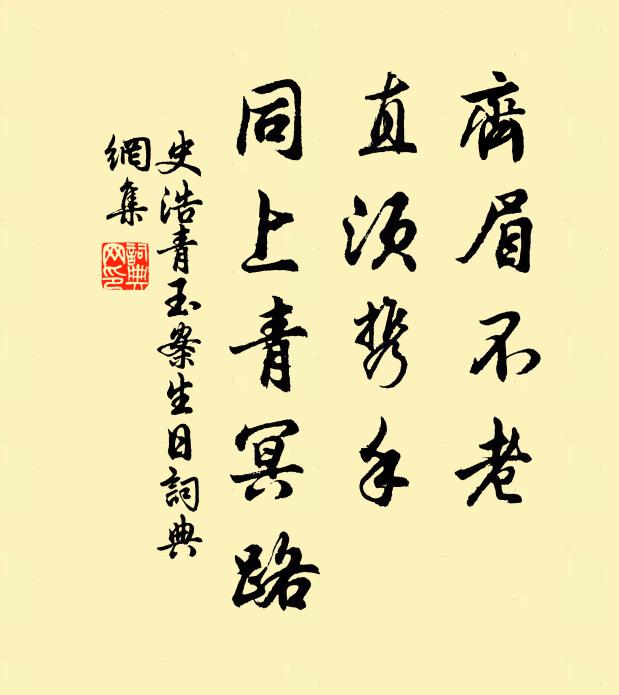 齊眉不老
直須携手
同上青冥路
史浩青玉案生日詞典
網集
詞典
网印